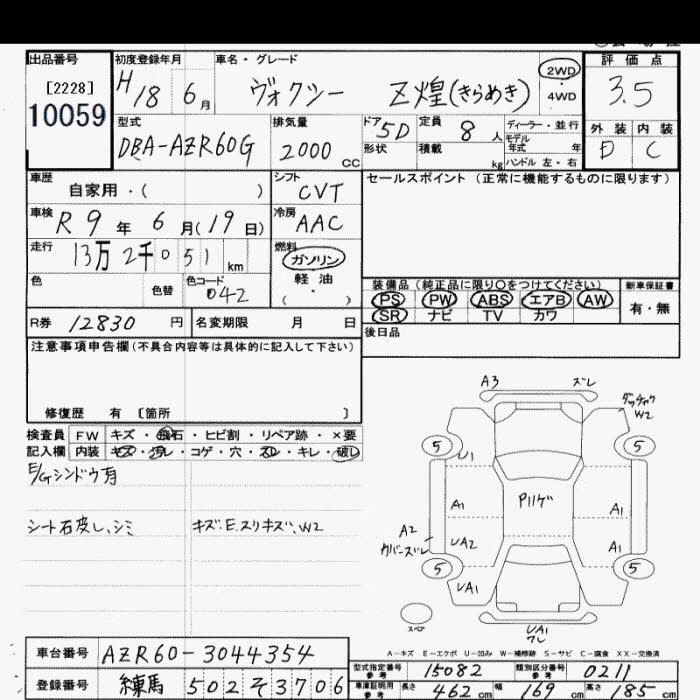 出品番号
[2228]
10059
初度登録年月
H18 6月
車名・グレード
ヴォクシー Z煌(きらめき)
2WD
・4WD
評価点
3.5
外装 内装
D C
型式
DBA-AZR60G
排気量
2000 CC
ドア 5D
形状
定員 8 人
積載 kg
ディーラー・並行
モデル
年式 年
ハンドル 左・右
車歴
自家用・( )
シフト
CVT
セールスポイント(正常に機能するものに限ります)
車検
R9年6月(19日)
冷房
AAC
走行
13万2千051km
燃料
ガソリン
軽油
( ・ )
色
色替
色コード
042
装備品(純正品に限り○をつけてください)
PS PW ABS エアB AW
SR ナビ TV カワ
新車保証書
有・無
R券 12830 円
名変期限 月 日
後日品
注意事項申告欄(不具合内容等は具体的に記入して下さい)
修復歴 有 〔箇所 〕
検査員
記入欄
FW キズ・飛石・ヒビ割・リペア跡・×要
内装 キズ・汚レ・コゲ・穴・スレ・キレ・破レ
E/Gシンドウ有
シート石皮し、シミ
キズ.E.スリキズ、W2
A3 ズレ
W2
5 5
U1
A1
Pハゲ
A1
A2
UA2
A1
5 5
UA1
UA1
ワレ
スペア
A-キズ E-エクボ U-凹み W-補修跡 S-サビ C-腐食 XX-交換済
車台番号 AZR60-3044354
登録番号 練馬 502 そ 3706
型式指定番号
参考
15082
類別区分番号
参考
0211
車庫証明用
参考
長さ 462 cm
幅 169 cm
高さ 185 cm